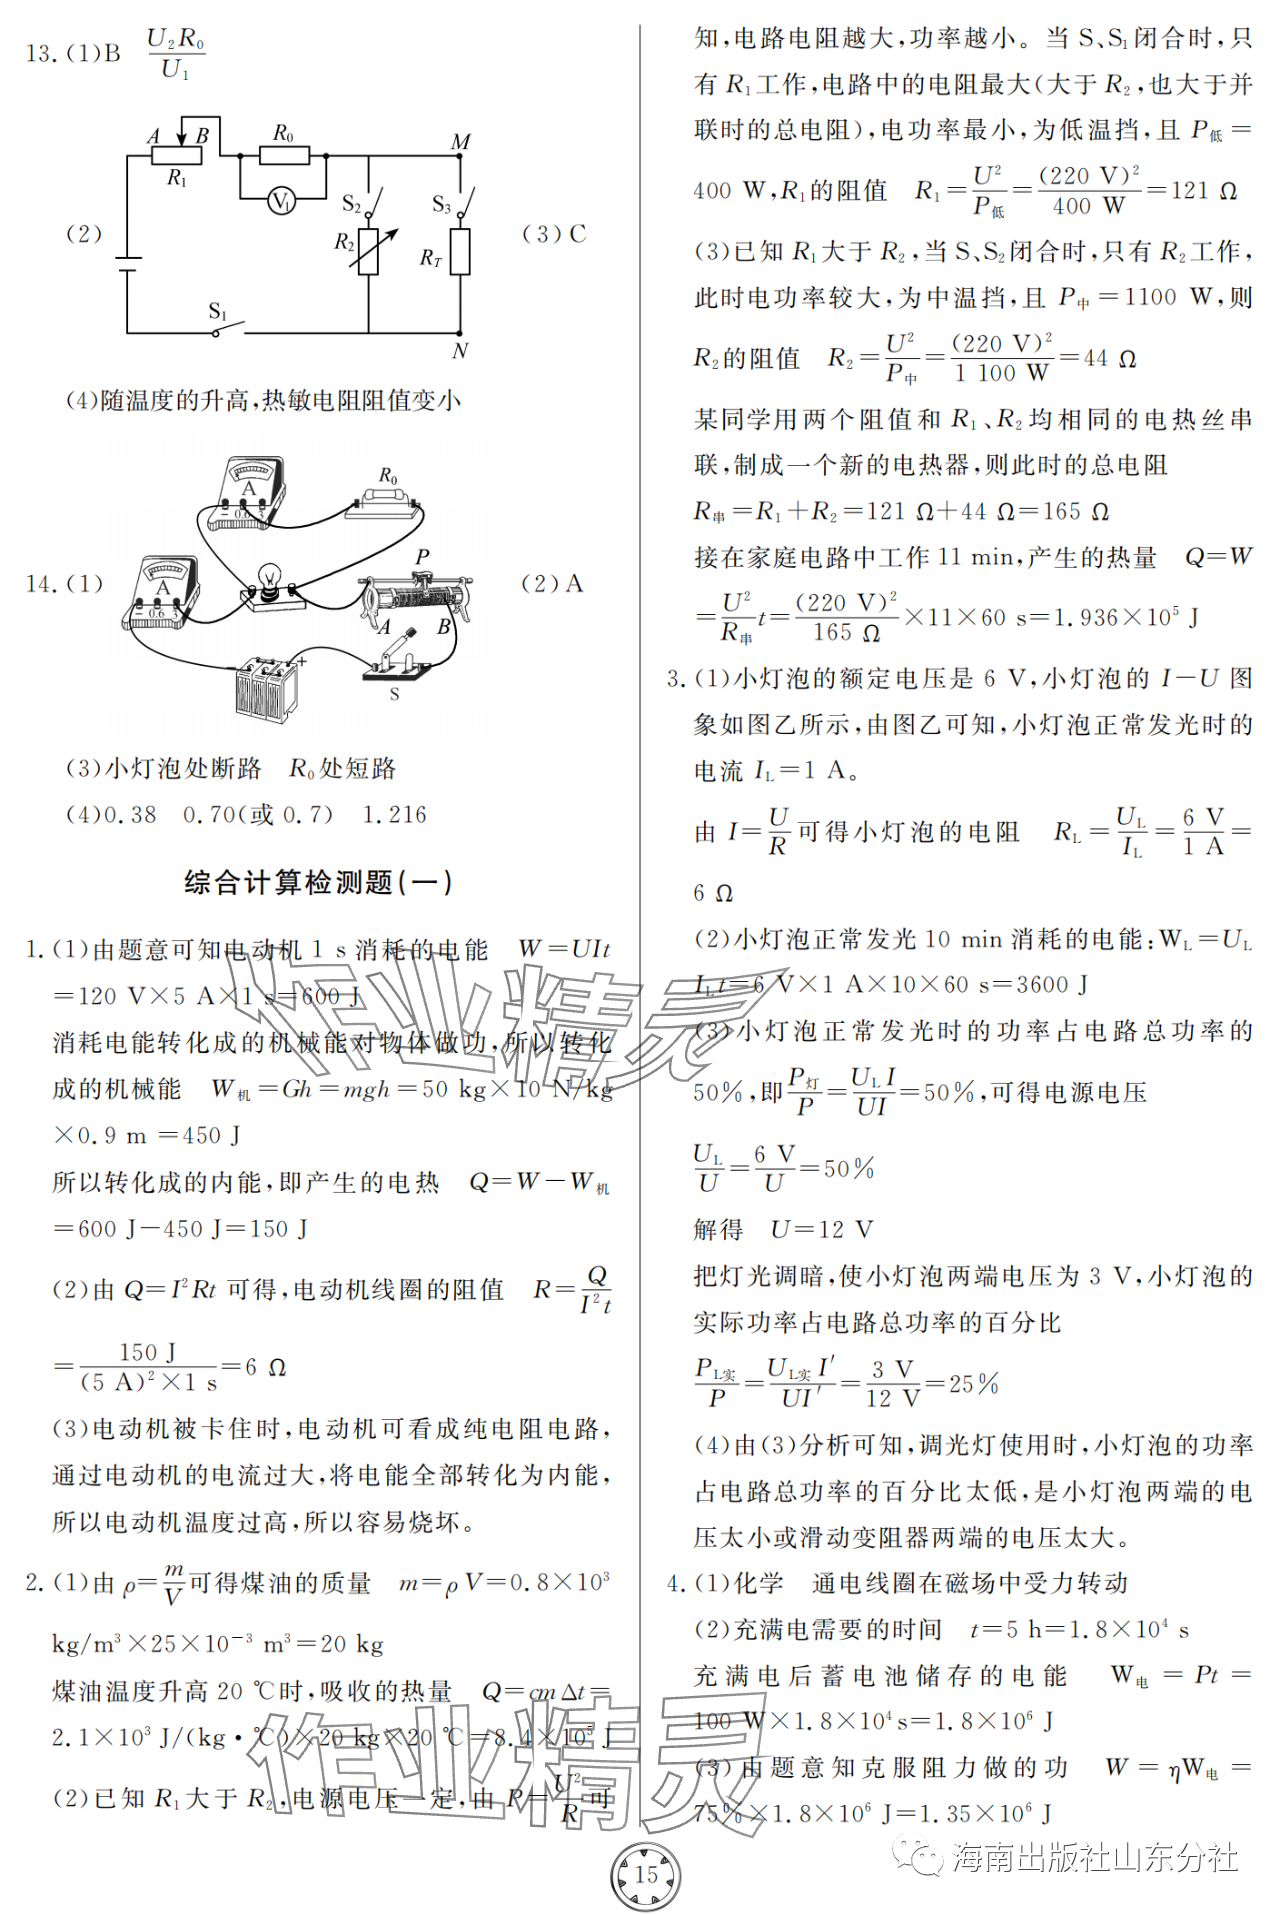 13.(1)B U₂R₀/U₁
A B R₀ M
R₁
V₁ S₂ S₃
(2) R₂ R_T (3)C
S₁
N
(4)随温度的升高,热敏电阻阻值变小
A R₀
− 0.6 3
P
14.(1) A (2)A
− 0.6 3
A B
− +
S
(3)小灯泡处断路 R₀处短路
(4)0.38 0.70(或0.7) 1.216
综合计算检测题(一)
1.(1)由题意可知电动机1 s消耗的电能 W=UIt
=120 V×5 A×1 s=600 J
消耗电能转化成的机械能对物体做功,所以转化
成的机械能 W机=Gh=mgh=50 kg×10 N/kg
×0.9 m=450 J
所以转化成的内能,即产生的电热 Q=W−W机
=600 J−450 J=150 J
(2)由Q=I²Rt可得,电动机线圈的阻值 R=Q/I²t
=150 J/(5 A)²×1 s=6 Ω
(3)电动机被卡住时,电动机可看成纯电阻电路,
通过电动机的电流过大,将电能全部转化为内能,
所以电动机温度过高,所以容易烧坏。
2.(1)由ρ=m/V可得煤油的质量 m=ρV=0.8×10³
kg/m³×25×10⁻³ m³=20 kg
煤油温度升高20 ℃时,吸收的热量 Q=cmΔt=
2.1×10³ J/(kg·℃)×20 kg×20 ℃=8.4×10⁵ J
(2)已知R₁大于R₂,电源电压一定,由P=U²/R可
知,电路电阻越大,功率越小。当S、S₁闭合时,只
有R₁工作,电路中的电阻最大(大于R₂,也大于并
联时的总电阻),电功率最小,为低温挡,且P低=
400 W,R₁的阻值 R₁=U²/P低=(220 V)²/400 W=121 Ω
(3)已知R₁大于R₂,当S、S₂闭合时,只有R₂工作,
此时电功率较大,为中温挡,且P中=1100 W,则
R₂的阻值 R₂=U²/P中=(220 V)²/1 100 W=44 Ω
某同学用两个阻值和R₁、R₂均相同的电热丝串
联,制成一个新的电热器,则此时的总电阻
R串=R₁+R₂=121 Ω+44 Ω=165 Ω
接在家庭电路中工作11 min,产生的热量 Q=W
=U²/R串 t=(220 V)²/165 Ω×11×60 s=1.936×10⁵ J
3.(1)小灯泡的额定电压是6 V,小灯泡的I−U图
象如图乙所示,由图乙可知,小灯泡正常发光时的
电流I_L=1 A。
由I=U/R可得小灯泡的电阻 R_L=U_L/I_L=6 V/1 A=
6 Ω
(2)小灯泡正常发光10 min消耗的电能:W_L=U_L
I_Lt=6 V×1 A×10×60 s=3600 J
(3)小灯泡正常发光时的功率占电路总功率的
50%,即P灯/P=U_LI/UI=50%,可得电源电压
U_L/U=6 V/U=50%
解得 U=12 V
把灯光调暗,使小灯泡两端电压为3 V,小灯泡的
实际功率占电路总功率的百分比
P_L实/P=U_L实I′/UI′=3 V/12 V=25%
(4)由(3)分析可知,调光灯使用时,小灯泡的功率
占电路总功率的百分比太低,是小灯泡两端的电
压太小或滑动变阻器两端的电压太大。
4.(1)化学 通电线圈在磁场中受力转动
(2)充满电需要的时间 t=5 h=1.8×10⁴ s
充满电后蓄电池储存的电能 W电=Pt=
100 W×1.8×10⁴s=1.8×10⁶ J
(3)由题意知克服阻力做的功 W=ηW电=
75%×1.8×10⁶ J=1.35×10⁶ J
作业精灵
作业精灵
海南出版社山东分社
15